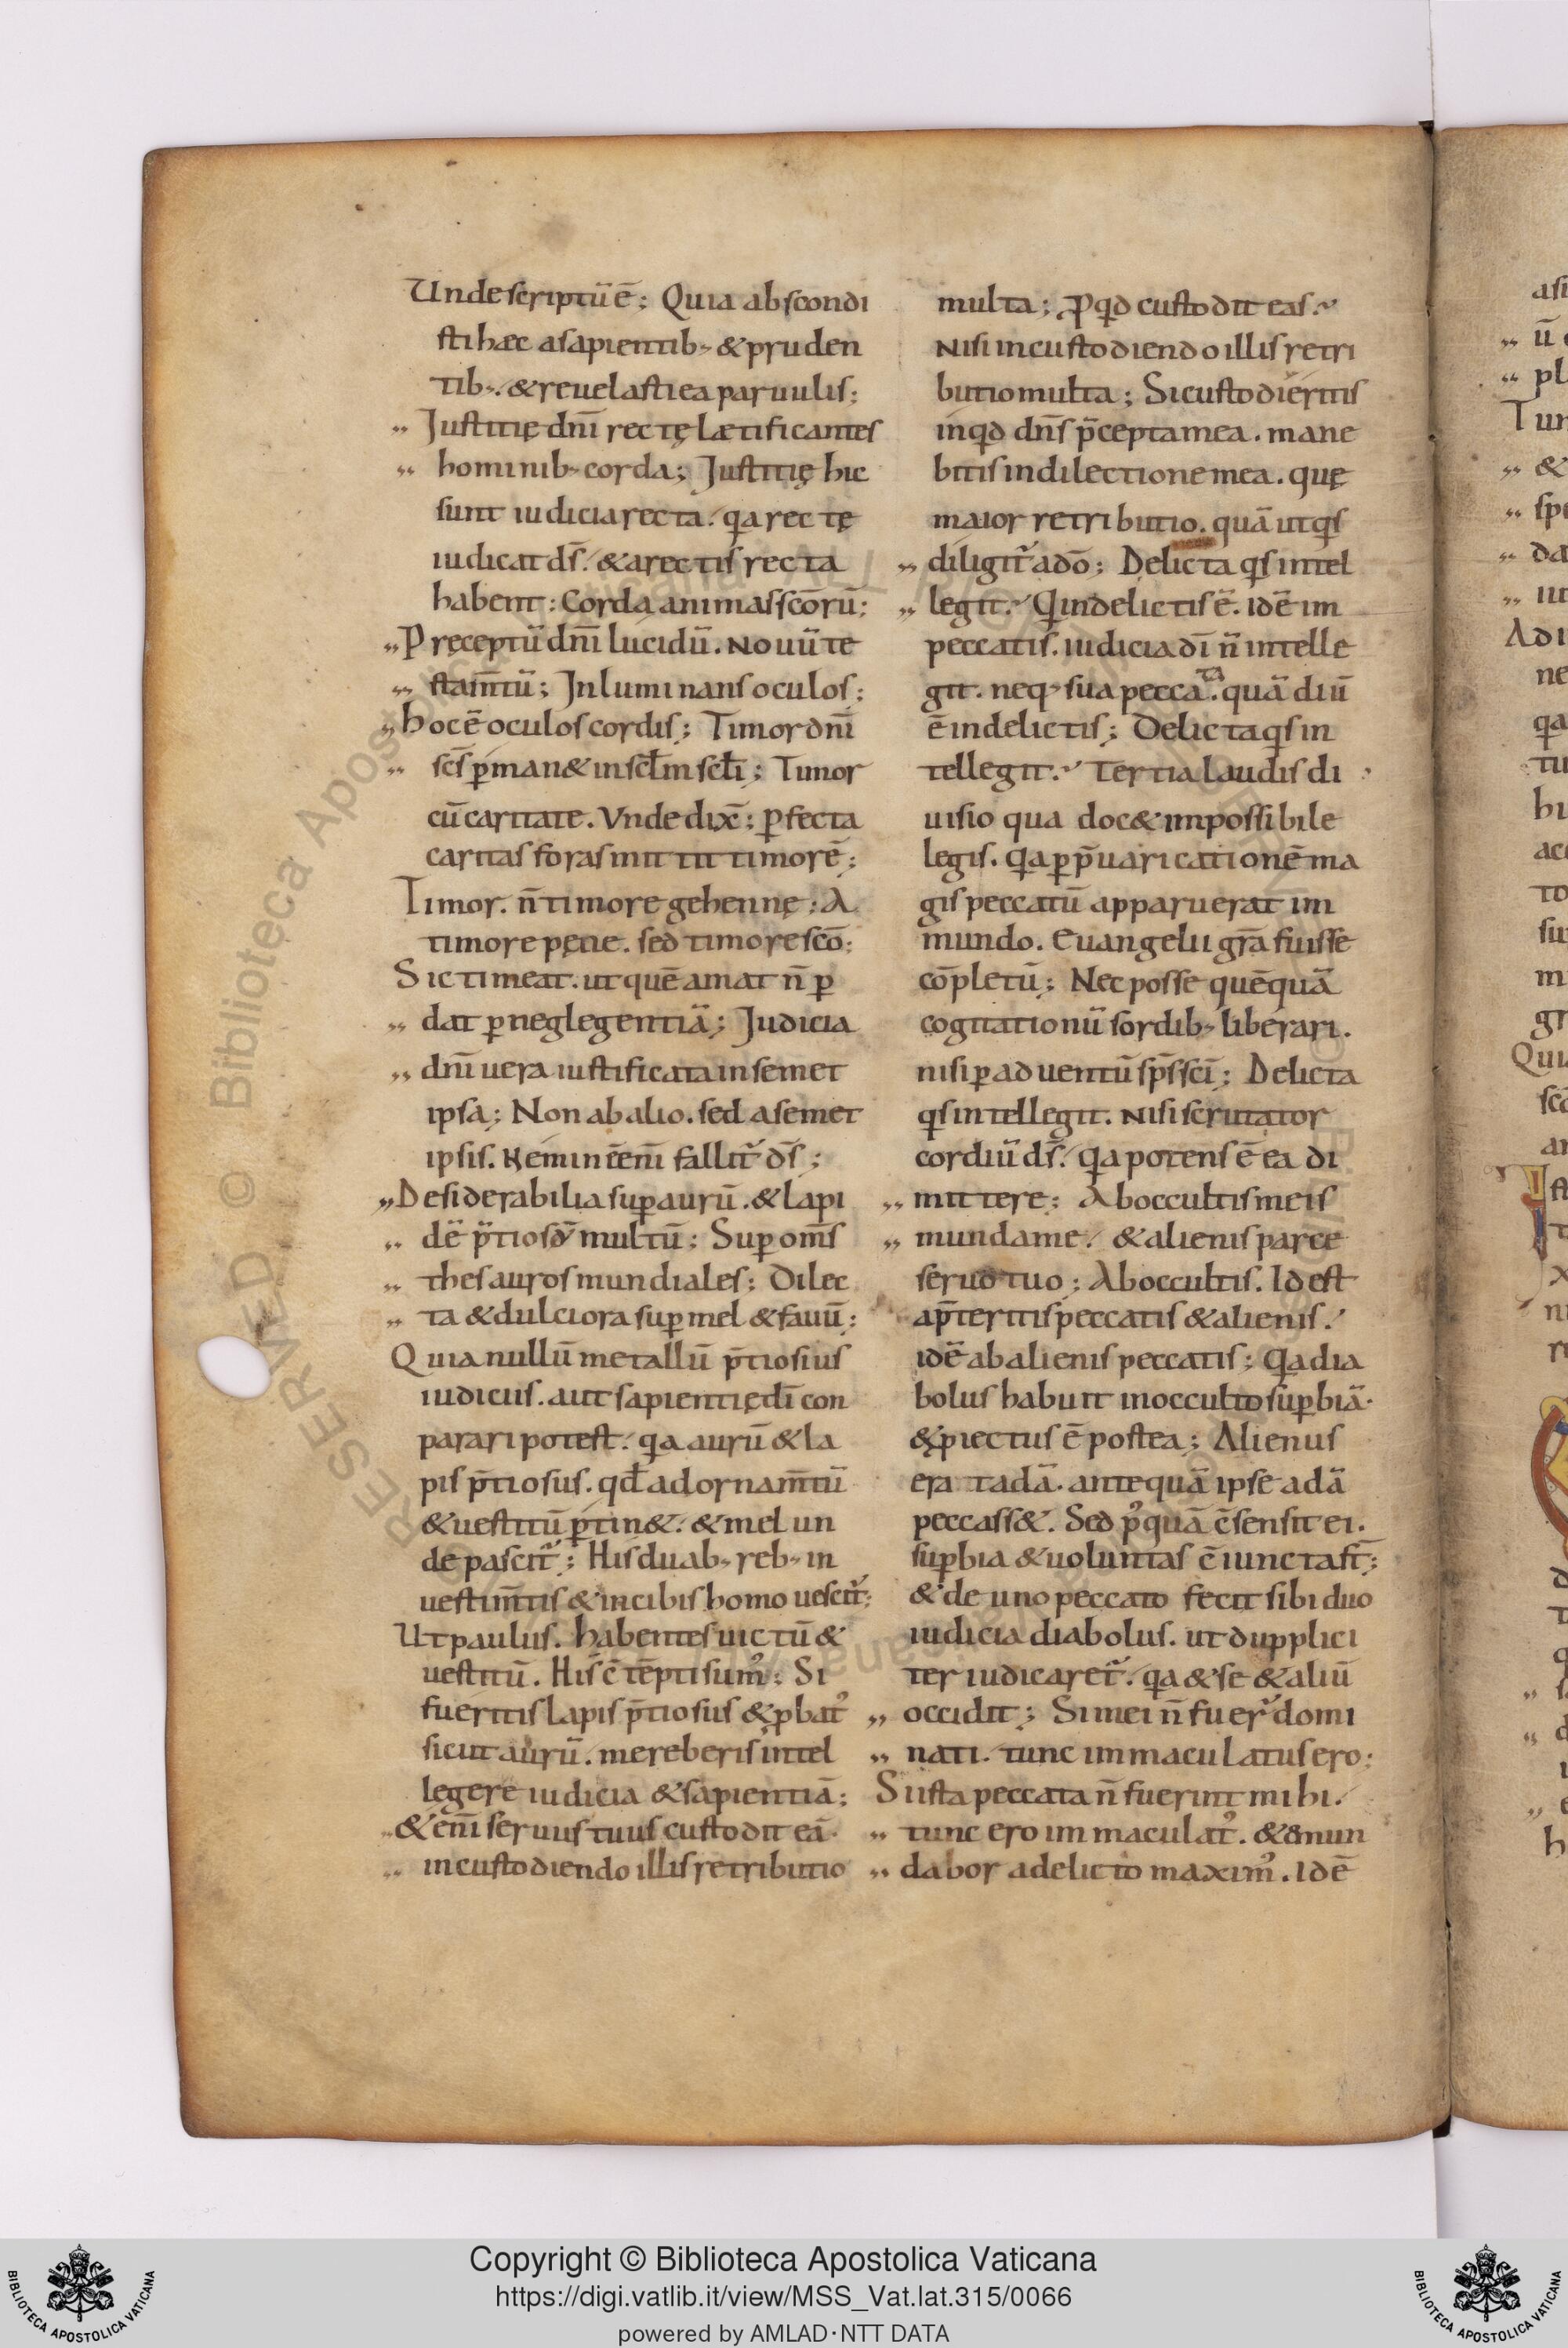 Undescriptū ē; Quia abscondi
sti hæc asapientib; & pruden
tib;. & reuelasti ea paruulis;
„ Justitię dnī rectę lætificantes
„ hominib; corda; Justitię hic
sunt iudicia recta. qa rectę
iudicat ds̄. & arectis recta
habent: Corda animas scōrū;
„ Pręceptū dnī lucidū. Nouū te
„ stam̄tū; Inluminans oculos;
„ hoc ē oculos cordis; Timor dnī
„ scs̄ pman& in sclm̄ scli; Timor
cū caritate. Vnde dix̄; pfecta
caritas foras mittit timorē;
Timor. n̄ timore gehennę; A
timore pęne. sed timore scō;
Sic timeat. ut quē amat n̄ p
„ dat p neglegentiā; Judicia
„ dnī uera iustificata insemet
ipsa; Non abalio. sed asemet
ipsis. Neminē enī fallit̄ ds̄;
„ Desiderabilia sup aurū. & lapi
„ dē p̄tiosū multū; Sup om̄s
„ thesauros mundiales; Dilec
„ ta & dulciora sup mel & fauū;
Quia nullū metallū p̄tiosius
iudiciis. aut sapientię dī con
parari potest. qa aurū & la
pis p̄tiosus. qd̄ ad ornam̄tū
& uestitū ptin&. & mel un
de pascit̄; His duab; reb; in
uestim̄tis & in cibis homo uescit̄;
Ut paulus. habentes uictū &
uestitū. His c̄tēpti sum᾿; Si
fueritis lapis p̄tiosus & pbat᾿
sicut aurū. mereberis intel
legere iudicia & sapientiā;
„ & enī seruus tuus custodit eā.
„ in custodiendo illis retributio
multa; Pqd custodit eas.
Nisi incustodiendo illis retri
butio multa; Si custodieritis
inqd dns̄ p̄cepta mea. mane
bitis indilectione mea. quę
maior retributio. quā ut qs
„ diligit̄ adō; Delicta qs intel
„ legit. Qindelictis ē. idē im
peccatis. iudicia dī n̄ intelle
git. neq; sua peccata. quā diū
ē indelictis; Delicta qs in
tellegit. Tertia laudis di
uisio qua doc& impossibile
legis. qa p p̄uaricationē ma
gis peccatū apparuerat im
mundo. Euangelii gr̄a fuisse
cōpletū; Nec posse quēquā
cogitationū sordib; liberari.
nisi p aduentū sps̄ scī; Delicta
qs intellegit. Nisi scrutator
cordiū ds̄. qa potens ē ea di
„ mittere; Aboccultis meis
„ mundame. & alienis parce
seruo tuo; Aboccultis. Id est
ap̄teritis peccatis & alienis.
idē abalienis peccatis; Qa dia
bolus habuit inocculto supbiā.
& piectus ē postea; Alienus
erat adā. antequā ipse adā
peccass&. Sed p᾿quā c̄sensit ei.
supbia & uoluntas c̄iuncta st̄;
& de uno peccato fecit sibi duo
iudicia diabolus. ut dupplici
ter iudicaret̄. qa & se & aliū
„ occidit; Si mei n̄ fuer̄ domi
„ nati. tunc immaculatus ero;
Si ista peccata n̄ fuerint mihi.
„ tunc ero immaculat᾿. & emun
„ dabor adelicto maxim᾿. Idē
Copyright © Biblioteca Apostolica Vaticana
https://digi.vatlib.it/view/MSS_Vat.lat.315/0066
powered by AMLAD·NTT DATA